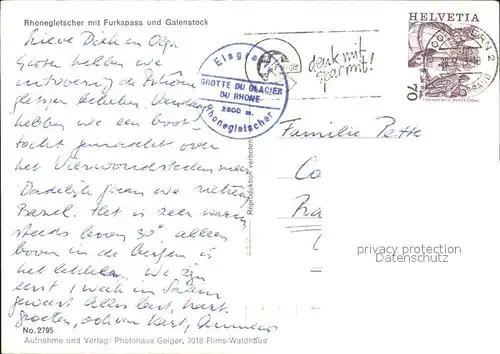 Rhonegletscher mit Furkapass und Galenstock
Lieve Dick en Olga
Gisteren hebben we
de Rhone
gletsjer bekeken. Vandaag
hebben we een boot
tocht gemaakt over
het Vierwoudsteden meer
Dadelijk gaan we richting
Basel. Het is zeer warm
steeds boven 30° alleen
boven in de bergen is
het lekker. We zijn
eerst 1 week in
geweest Alles best, hart.
groeten, ook van Bart,
No. 2795
Aufnahme und Verlag: Photohaus Geiger, 7018 Flims-Waldhaus
Reproduktion verboten
GROTTE DU GLACIER
DU RHONE
2300 m.
Rhonegletscher
denk mit
spar mit!
HELVETIA
70
Familie
privacy protection
Datenschutz